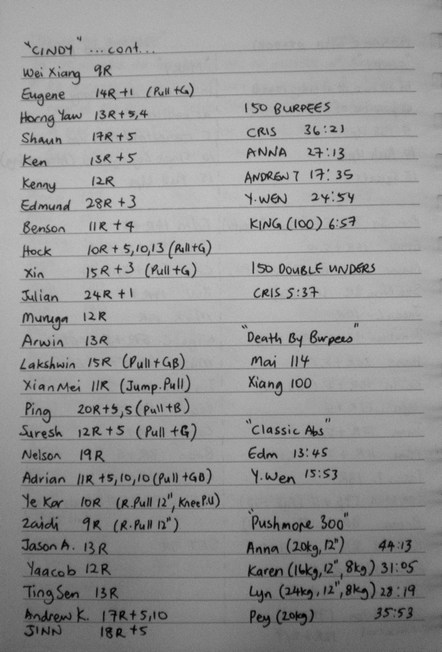 "CINDY" ... cont...
Wei Xiang 9R
Eugene 14R+1 (Pull+G)
Horng Yaw 13R+5,4
Shaun 17R+5
Ken 13R+5
Kenny 12R
Edmund 28R+3
Benson 11R+4
Hock 10R+5,10,13 (Pull+G)
Xin 15R+3 (Pull+G)
Julian 24R+1
Muruga 12R
Arwin 13R
Lakshwin 15R (Pull+GB)
XianMei 11R (Jump.Pull)
Ping 20R+5,5 (Pull+B)
Suresh 12R+5 (Pull+G)
Nelson 19R
Adrian 11R+5,10,10 (Pull+GB)
Ye Kar 10R (R.Pull 12", KneeP.U)
Zaidi 9R (R.Pull 12")
Jason A. 13R
Yaacob 12R
Ting Sen 13R
Andrew K. 17R+5,10
JINN 18R+5
150 BURPEES
CRIS 36:23
ANNA 27:13
ANDREW T 17:35
Y.WEN 24:54
KING (100) 6:57
150 DOUBLE UNDERS
CRIS 5:37
"Death By Burpees"
Mai 114
Xiang 100
"Classic Abs"
Edm 13:45
Y.Wen 15:53
"Pushmore 300"
Anna (20kg, 12") 44:13
Karen (16kg, 12", 8kg) 31:05
Lyn (24kg, 12", 8kg) 28:19
Pey (20kg) 35:53